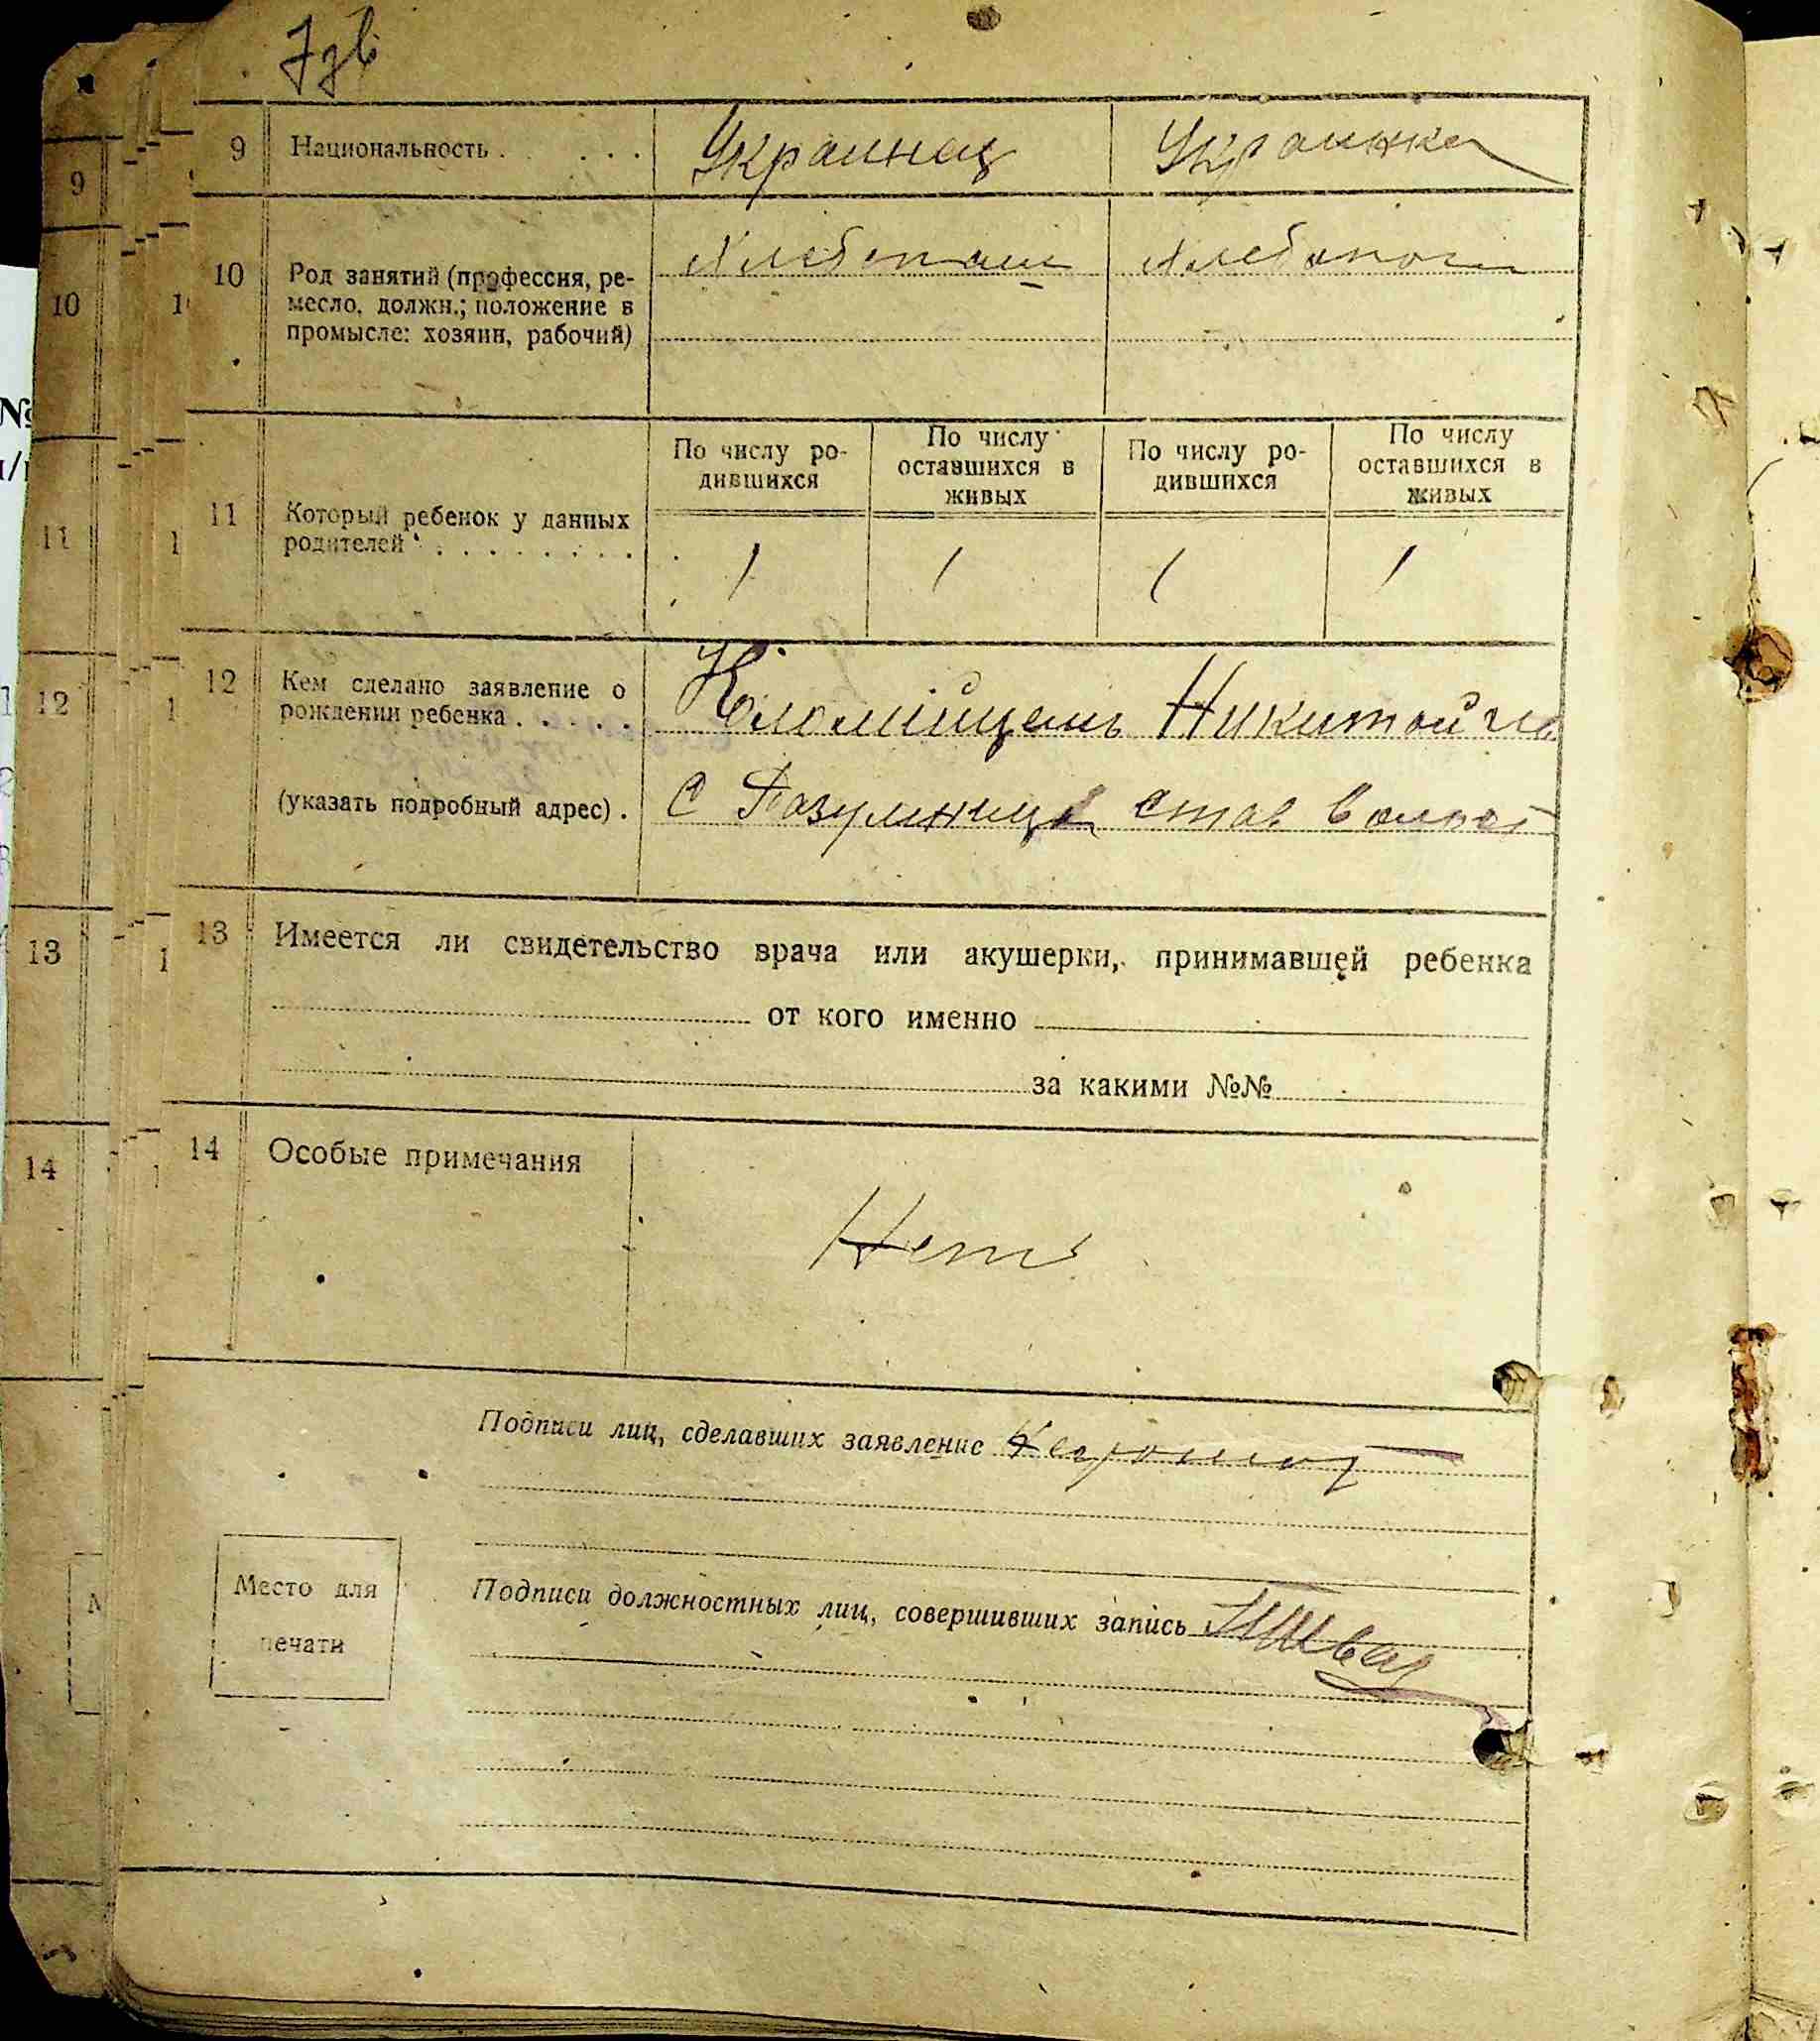 9 Национальность . . . . . Украинец Украинка
10 Род занятий (профессия, ре-
месло, должн.; положение в
промысле: хозяин, рабочий)
Хлебопаш Хлебопаш
11 Который ребенок у данных
родителей . . . . . . . .
По числу ро-
дившихся
По числу
оставшихся в
живых
По числу ро-
дившихся
По числу
оставшихся в
живых
1 1 1 1
12 Кем сделано заявление о
рождении ребенка . . . . .
Коломійцемъ Никитой
(указать подробный адрес) .
С став волост
13 Имеется ли свидетельство врача или акушерки, принимавшей ребенка
от кого именно
за какими №№
14 Особые примечания
Нет
Подписи лиц, сделавших заявление
Место для
печати
Подписи должностных лиц, совершивших запись
9
10
11
12
13
14